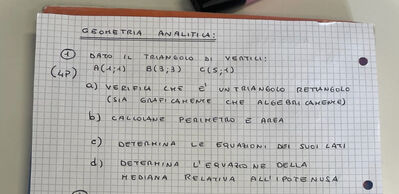 GEOMETRIA ANALITICA:
① DATO IL TRIANGOLO DI VERTICI:
(4P) A(1;1) B(3;3) C(5;1)
a) VERIFICA CHE E' UN TRIANGOLO RETTANGOLO
(SIA GRAFICAMENTE CHE ALGEBRICAMENTE)
b) CALCOLANE PERIMETRO E AREA
c) DETERMINA LE EQUAZIONI DEI SUOI LATI
d) DETERMINA L'EQUAZIONE DELLA
MEDIANA RELATIVA ALL'IPOTENUSA